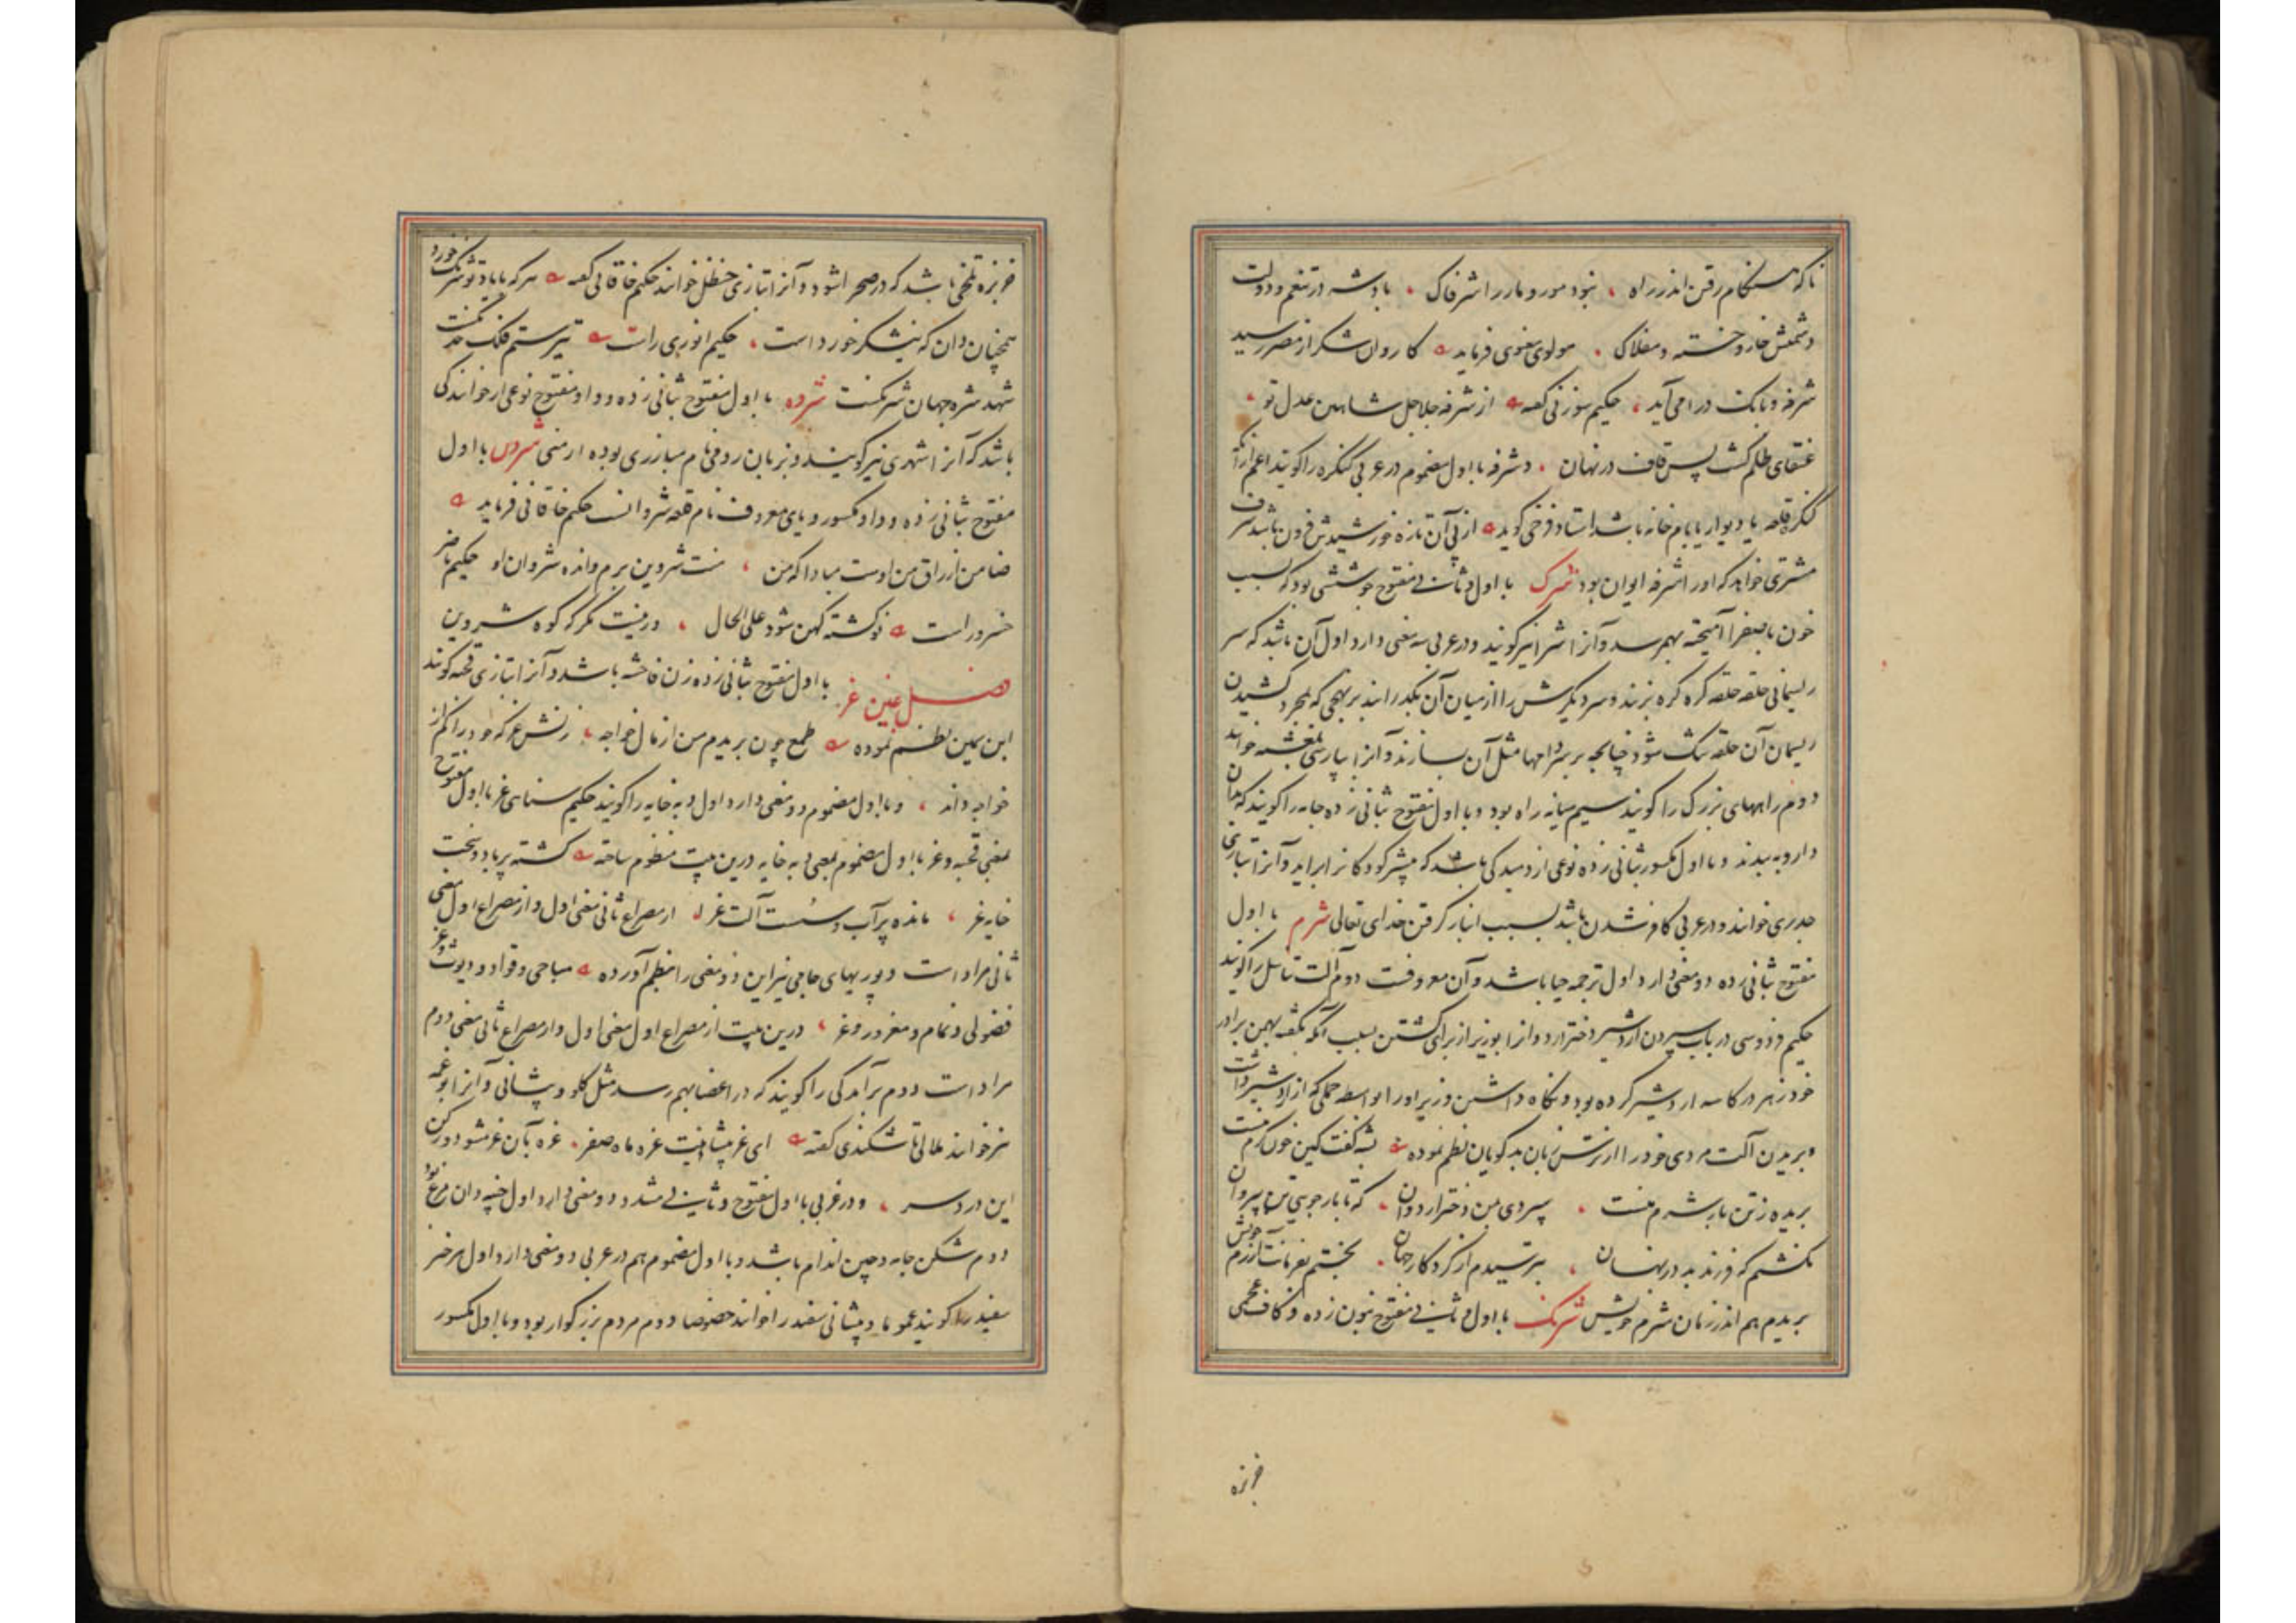 تا که هنگام رفتن اندر راه ، نبود مور و مار را شرفاک ، باد شه در تنعم و دولت
دشمنش خار و خسته و مفلاک ، مولوی معنوی فرماید کاروان شکر از مصر رسید
شرفه و بانک درا می آید ، حکیم سوزنی گفته از شرفه جلاجل شاهین عدل تو ،
عنقای ظلم گشت پس قاف در نهان ، و شرفه با اول مضموم در عربی کنکره را گویند اعم از آنکه
کنکره قلعه یا دیوار یا بام خانه باشد استاد فرخی گوید از پی آن تازه خورشیدش فزون باشد شرف
مشتری خواهد که او را شرفه ایوان بود شرک با اول و ثانی مفتوح جوششی بود که بسبب
خون با صفرا آمیخته بهم رسد و آنرا شرا نیز گویند و در عربی سه معنی دارد اول آن باشد که سر
ریسمانی حلقه حلقه کره کره بزنند و سر دیگرش را از میان آن بگذرانند بر نهجی که بمجرد کشیدن
ریسمان آن حلقه تنگ شود چنانچه بر سر دامها مثل آن بسازند و آنرا بپارسی خوانند
دوم راههای بزرگ را گویند سیم میانه راه بود و با اول مفتوح بثانی زده جامه را گویند که بدان
دارو به بندند و با اول مکسور بثانی زده نوعی از دمیدکی باشد که بیشتر کودکانرا براید و آنرا بتازی
جدری خوانند و در عربی کافر شدن باشد بسبب انباز گرفتن خدای تعالی شرم با اول
مفتوح بثانی زده دو معنی دارد اول ترجمه حیا باشد و آن معروفست دوم آلت تناسل را گویند
حکیم فردوسی در باب سپردن اردشیر دختر اردوانرا بوزیر از برای کشتن بسبب آنکه بگفته بهمن برادر
خود زهر در کاسه اردشیر کرده بود و نگاه داشتن وزیر او را بواسطه حملی که از اردشیر داشت
و بریدن آلت مردی خود را از ترس زبان بدگویان نظم نموده بشه گفت کین خون گرم منست
بریده ز تن باز شرم منست ، سپردی بمن دختر اردوان ، که تا باز جویی تن
نکشتم که فرزند بد در نهان ، بترسیدم از کردگار جهان ، بجستم بفرمانت آزرم خویش
بریدم هم اندر زمان شرم خویش شرنک با اول و ثانی مفتوح بنون زده و کاف عجمی
خربزه
خربزه تلخی باشد که در صحرا شود و آنرا بتازی حنظل خوانند حکیم خاقانی گفته هر که با یاد تو شرنک خورد
همچنان دان که نیشکر خورد است ، حکیم انوری راست تیر ستم فلک خدنکست
شهد شره جهان شرنکست شروه با اول مفتوح بثانی زده و واو مفتوح نوعی از خوانندکی
باشد که آنرا شهری نیز گویند و بزبان رومی نام مبارزی بوده ارمنی شروین با اول
مفتوح بثانی زده و واو مکسور و یای معروف نام قلعه شروانست حکیم خاقانی فرماید
ضامن ارزاق من اوست مبادا که من ، منت شروین برم و انده شروان او حکیم ناصر
خسرو راست نو گشته کهن شود علی الحال ، ور نیست مگر که کوه شروین
فصل غین غر با اول مفتوح بثانی زده زن فاحشه باشد و آنرا بتازی قحبه گویند
ابن یمین نظم نموده طمع چون بریدم من از مال خواجه ، زنش غر که خود را کم از
خواجه داند ، و با اول مضموم دو معنی دارد اول دبه خایه را گویند حکیم سنائی غر با اول مفتوح
بمعنی قحبه و غر با اول مضموم بمعنی دبه خایه درین بیت منظوم ساخته گشته پر باد و سخت
خایه غر ، مانده پر آب و سست آلت غر از مصراع ثانی معنی اول و از مصراع اول معنی
ثانی مراد است و پوربهای جامی نیز این دو معنی را بنظم آورده مباحی و قواد و دیوث و غر
فضولی و نمام و مغرور و غر ، درین بیت از مصراع اول معنی اول و از مصراع ثانی معنی دوم
مراد است دوم برآمدکی را گویند که در اعضا بهم رسد مثل گلو و پیشانی و آنرا بوغمه
نیز خوانند تاشکندی گفته ای غر پیشانیت غره ماه صفر ، غره بآن غر مشو دور کن
این درد سر ، و در عربی با اول مفتوح و ثانی مشدد دو معنی دارد اول چینه دان مرغ بود
دوم شکن جامه و چین اندام باشد و با اول مضموم هم در عربی دو معنی دارد اول هر چیز
سفید را گویند عموما و پیشانی سفید را خوانند خصوصا دوم مردم بزرگوار بود و با اول مکسور